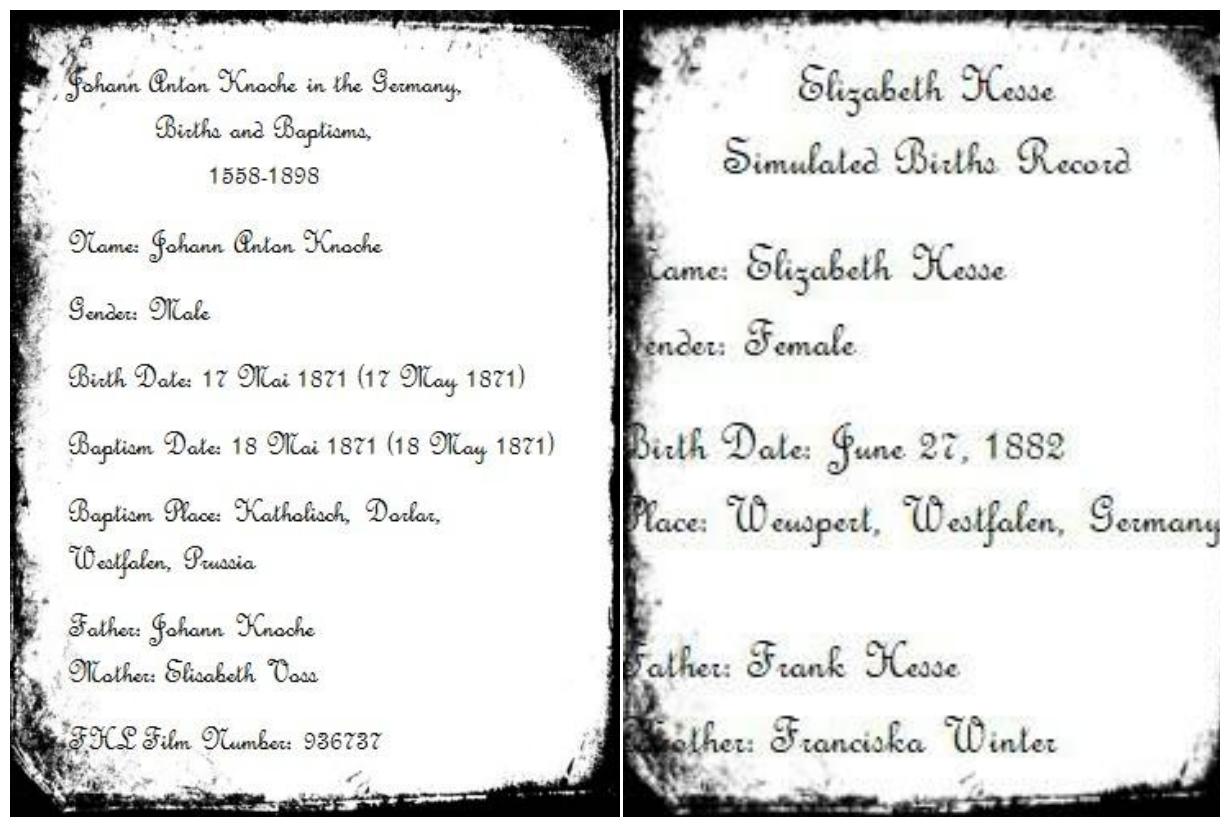 Johann Anton Knoche in the Germany,
Births and Baptisms,
1558-1898
Name: Johann Anton Knoche
Gender: Male
Birth Date: 17 Mai 1871 (17 May 1871)
Baptism Date: 18 Mai 1871 (18 May 1871)
Baptism Place: Katholisch, Dorlar,
Westfalen, Prussia
Father: Johann Knoche
Mother: Elisabeth Voss
FHL Film Number: 936737
Elizabeth Hesse
Simulated Births Record
Name: Elizabeth Hesse
Gender: Female
Birth Date: June 27, 1882
Place: Weuspert, Westfalen, Germany
Father: Frank Hesse
Mother: Franciska Winter